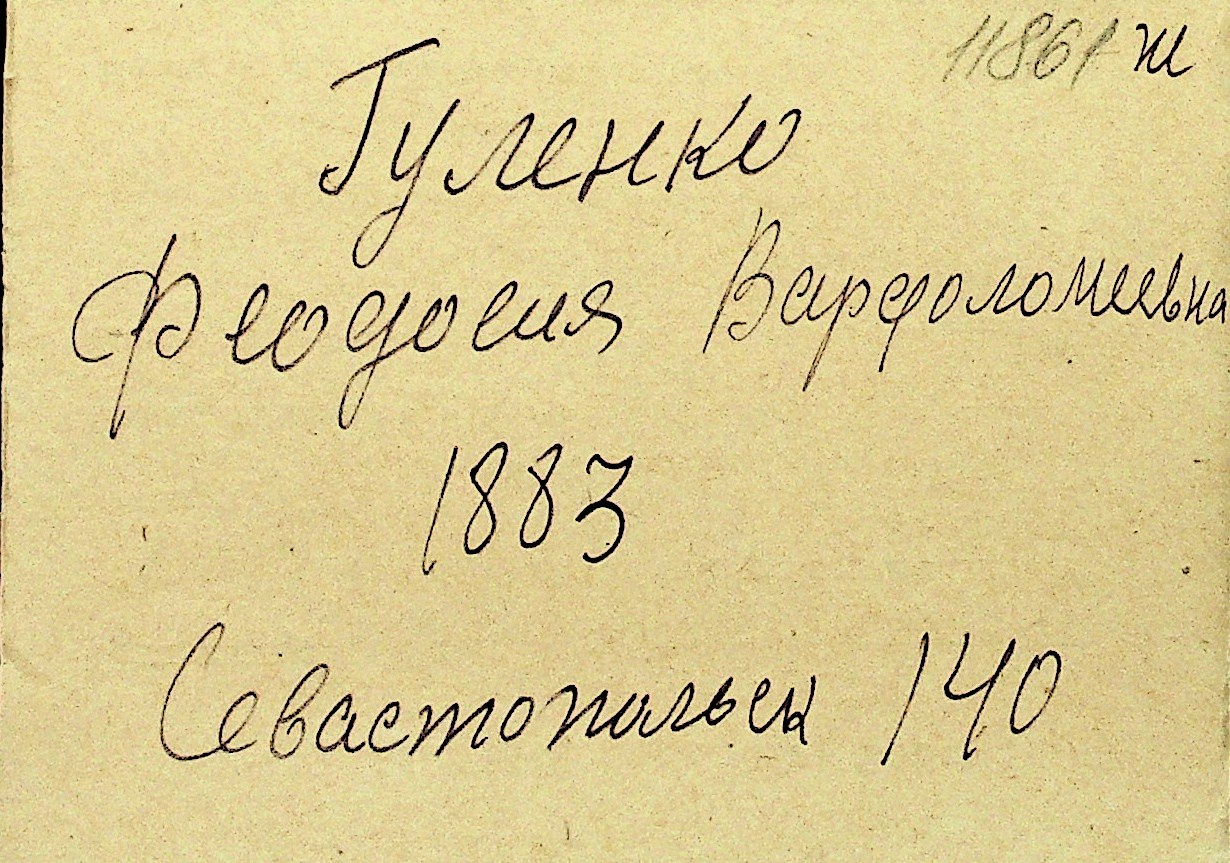 11861 ж
Гуленко
Феодосия Варфоломеевна
1883
Севастопольск 140